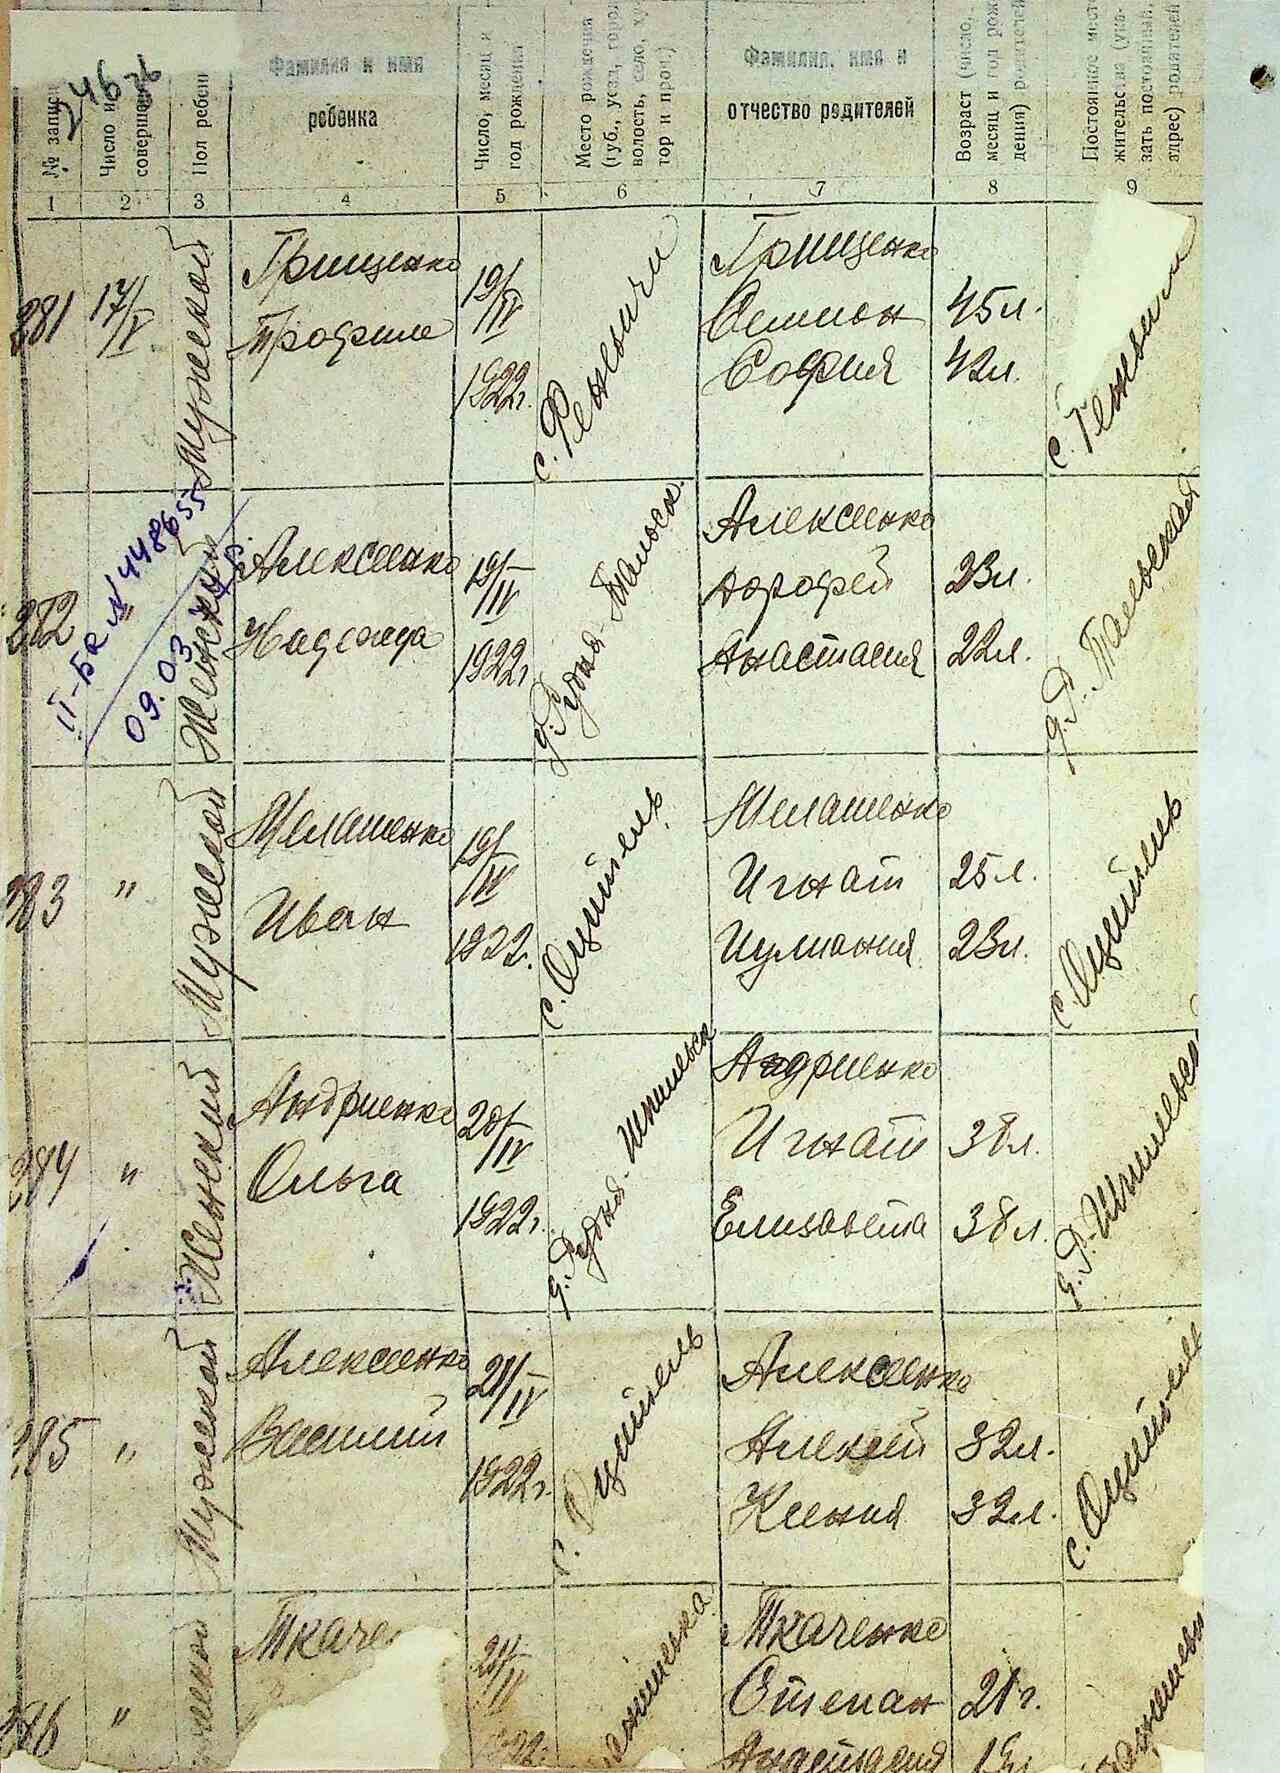 246
№ записи
Число и
совершен
Пол ребен
Фамилия и имя
ребенка
Число, месяц и
год рождения
Место рождения
(губ., уезд, город
волость, село, ху-
тор и проч.)
Фамилия, имя и
отчество родителей
Возраст (число,
месяц и год рож-
дения) родителей
Постоянное место
жительства (ука-
зать постоянный
адрес) родителей
1 2 3 4 5 6 7 8 9
281
17/V
Мужеской
Грищенко
Трофим
19/IV
1922г.
с. Феневичи
Грищенко
Семион
София
45л.
42л.
с.
282
"
II-БК № 448655
09.03
Женский
Алексеенко
Надежда
19/IV
1922г
д. Рудня-Тальск.
Алексеенко
Дорофей
Анастасия
23л.
22л.
д. Р.-Тальская
283
"
Мужеской
Мелашенко
Иван
19/IV
1922.
с. Оцитель
Мелашенко
Игнат
Иулиания
25л.
23л.
с. Оцитель
284
"
Женский
Андриенко
Ольга
20/IV
1922г.
д. Рудня-Шпилевск
Андриенко
Игнат
Елизавета
38л.
38л.
д. Р.-Шпилевск
285
"
Мужеской
Алексеенко
Василий
21/IV
1922г.
с. Оцитель
Алексеенко
Алексей
Ксения
32л.
32л.
с. Оцитель
286
"
Ткаче
21/IV
1922г.
Ткаченко
Степан
Анастасия
21г.